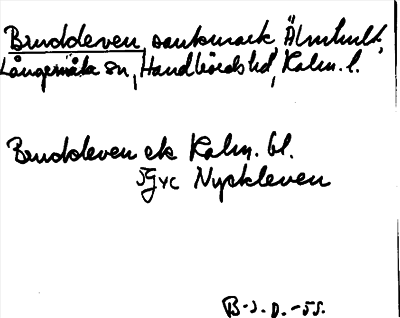 Bruddeven, sankmark, Älmhult,
Långemåla sn, Handbörds hd, Kalm. l.
Bruddeven ek Kalm. bl.
5G vc Nyckleven
B-S. D. -55.